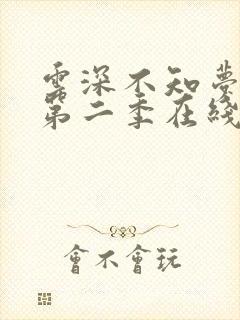 雲深不知夢
第二季在綫
會不會玩